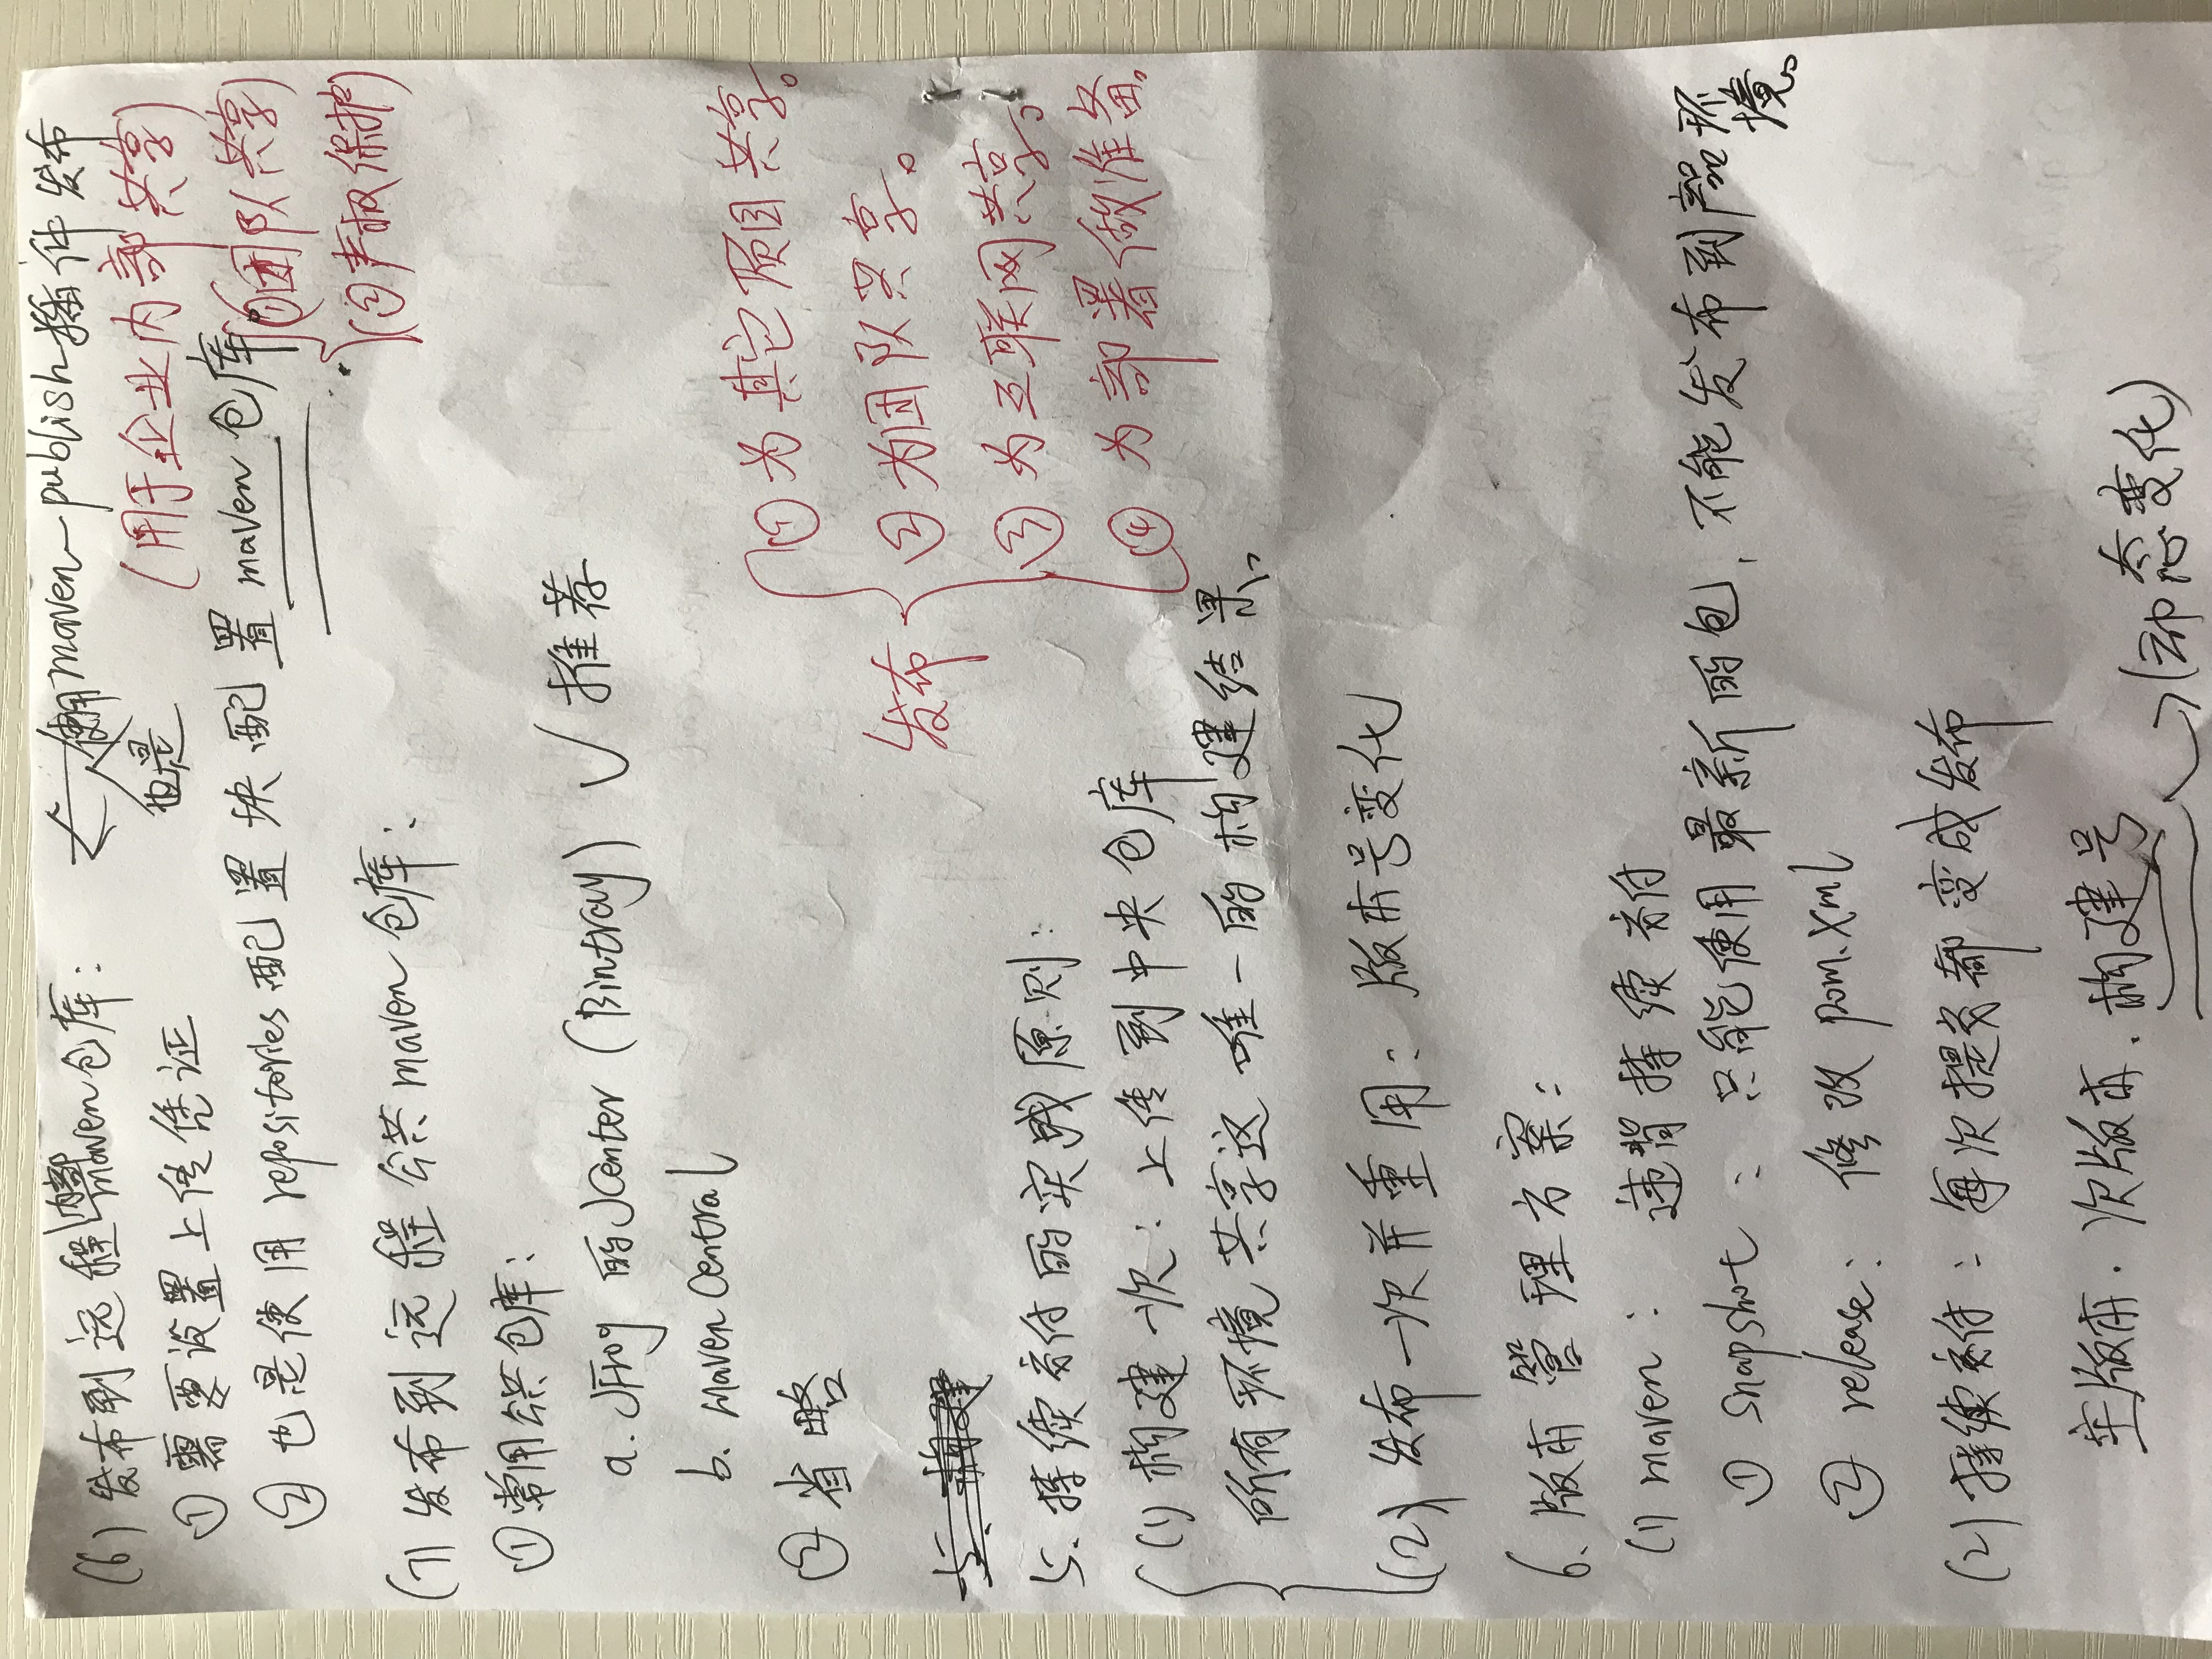 (6) 发布到远程内部maven仓库: ← 使用maven-publish插件发布
也是
(用于企业内部共享)
① 需要设置上传凭证
② 也是使用repositories配置块配置maven仓库.
①团队共享
②产权保护
(7) 发布到远程公共maven仓库:
① 常用公共仓库:
a. JFrog 的JCenter (Bintray) ✓ 推荐
b. maven Central
② 省略
发布
① 为其它项目共享。
② 为团队共享。
③ 为互联网共享。
④ 为部署做准备。
5. 构建
5. 持续交付的实践原则:
(1) 构建一次: 上传到中央仓库
所有环境共享这唯一的构建结果。
(2) 发布一次并重用: 版本号变化
6. 版本管理方案:
(1) maven: 违背持续交付
① snapshot : 只能使用最新的包, 不能发布到产品环境。
② release: 修改 pom.xml
(2) 持续交付: 每次提交都变成发布
主版本. 次版本. 构建号 → (动态变化)